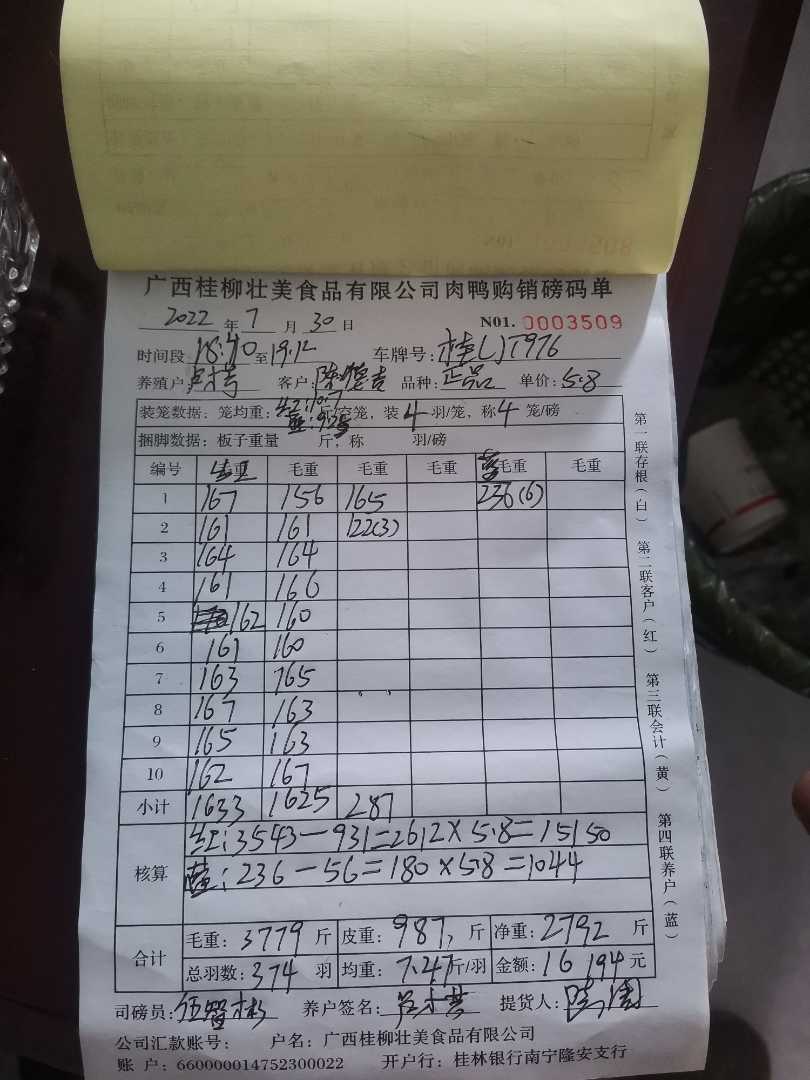 广西桂柳壮美食品有限公司肉鸭购销磅码单
2022 年 7 月 30 日 N01. 0003509
时间段 18:40 至 19:12 车牌号: 桂LJT976
养殖户 客户: 品种: 正品 单价: 5.8
装笼数据: 笼均重: 红:10.7 蓝:9.25 斤/空笼, 装 4 羽/笼, 称 4 笼/磅
捆脚数据: 板子重量 斤, 称 羽/磅
编号 毛重 毛重 毛重 毛重 毛重
1 167 156 165 236(6)
2 161 161 122(3)
3 164 164
4 161 166
5 162 160
6 161 160
7 163 165
8 167 163
9 165 163
10 162 167
小计 1633 1625 287
核算 红:3543-931=2612×5.8=15150
蓝:236-56=180×5.8=1044
合计 毛重: 3779 斤 皮重: 987 斤 净重: 2792 斤
总羽数: 374 羽 均重: 7.47 斤/羽 金额: 16194 元
司磅员: 养户签名: 提货人:
公司汇款账号: 户名: 广西桂柳壮美食品有限公司
账 户: 660000014752300022 开户行: 桂林银行南宁隆安支行
第一联存根(白) 第二联客户(红) 第三联会计(黄) 第四联养户(蓝)